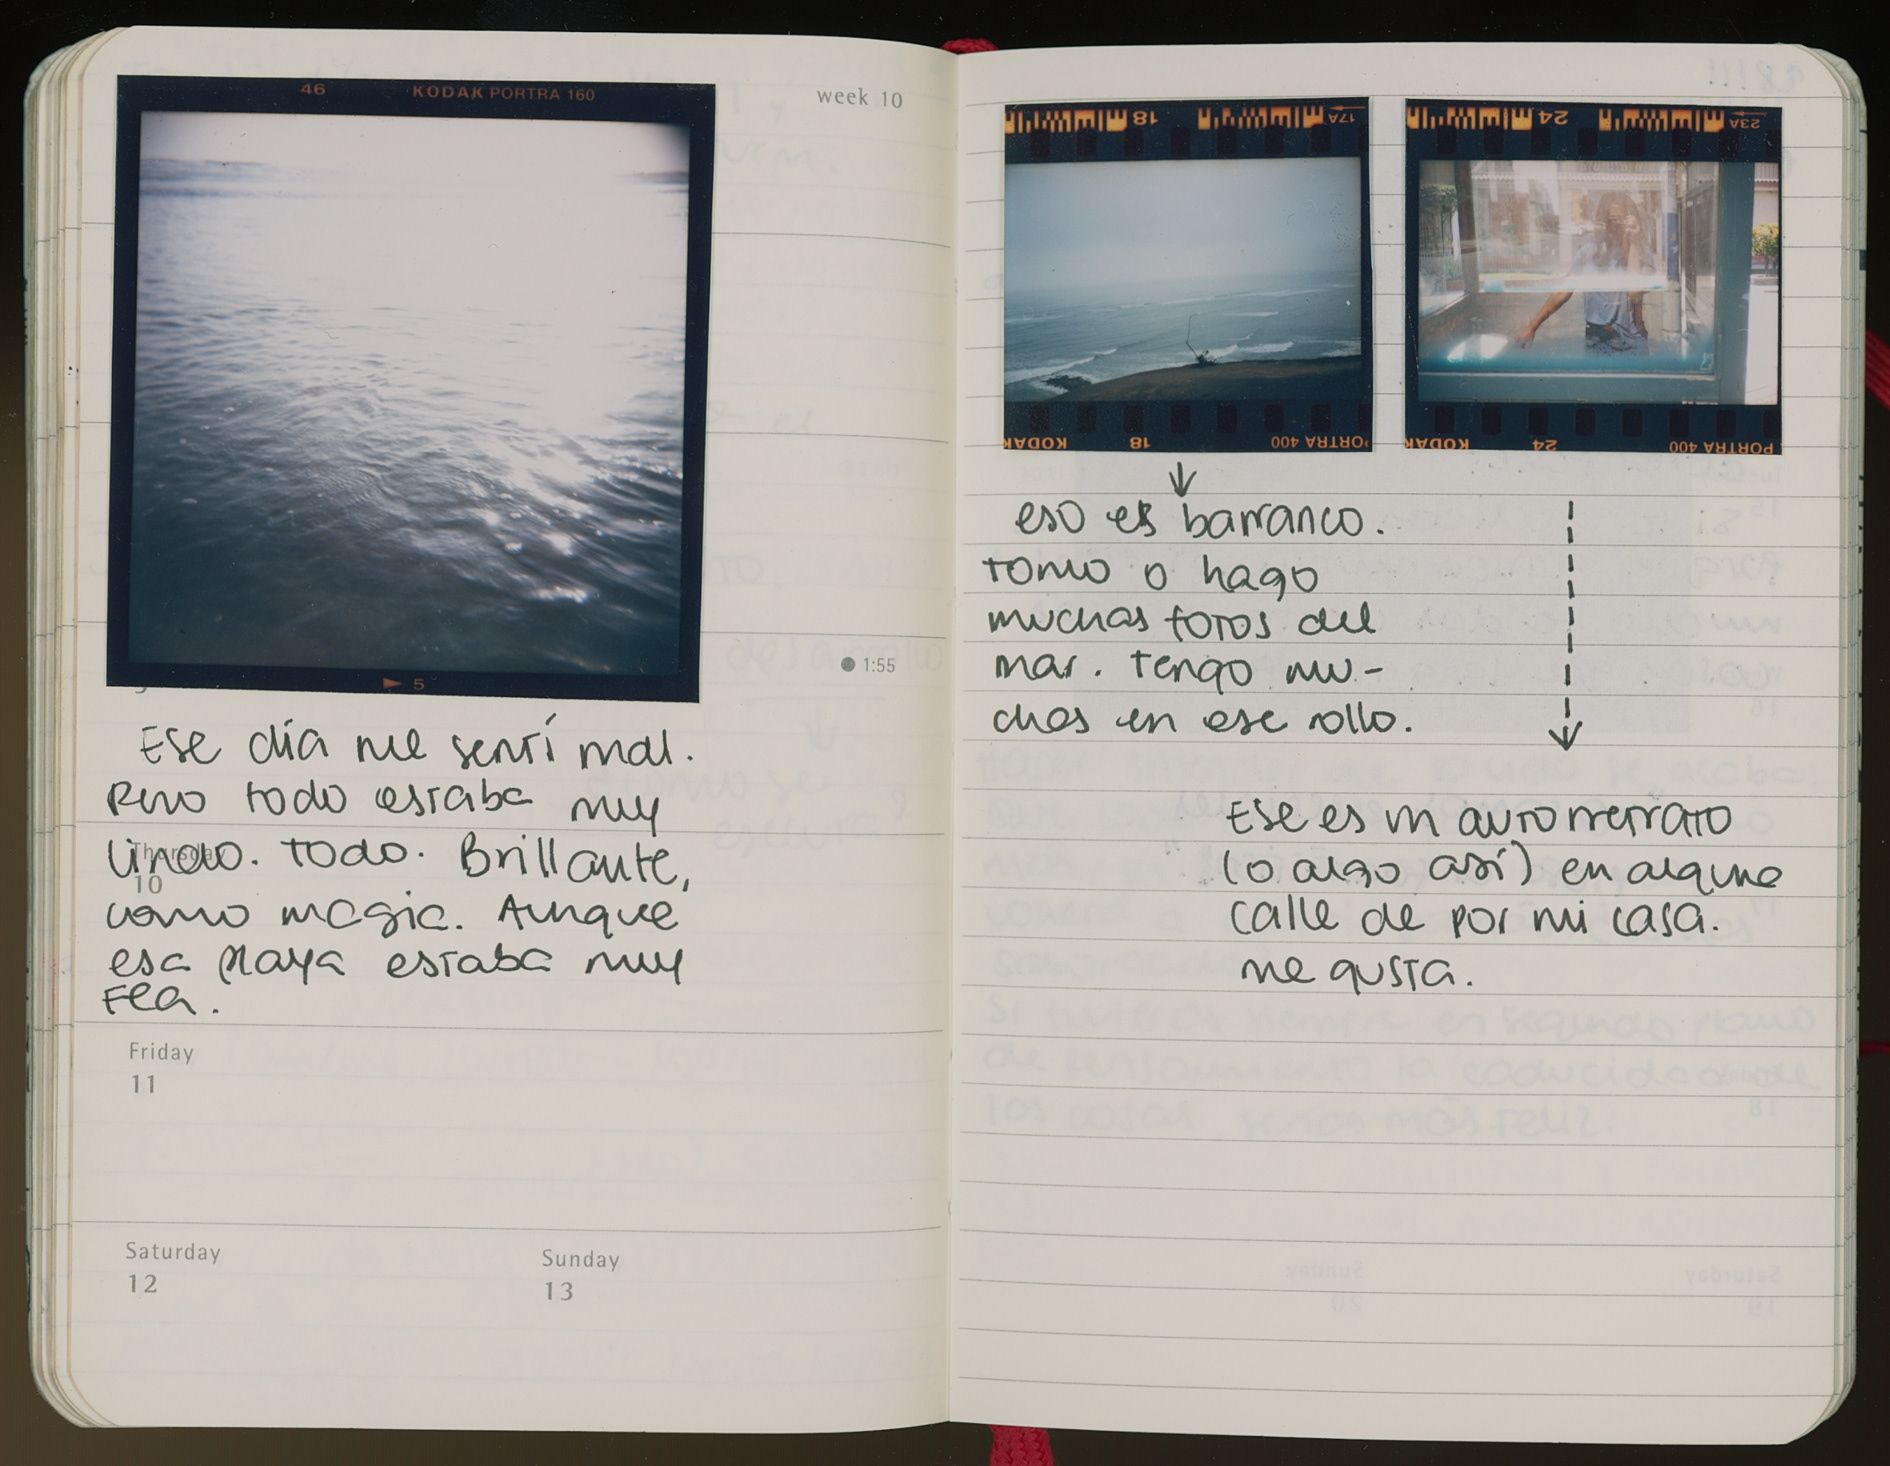 46 KODAK PORTRA 160
week 10
5
1:55
Ese día me sentí mal.
Pero todo estaba muy
lindo. Todo. Brillante,
como magia. Aunque
esa playa estaba muy
fea.
Thursday
10
Friday
11
Saturday
12
Sunday
13
18 17A
KODAK 18 PORTRA 400
24 23A
KODAK 24 PORTRA 400
eso es barranco.
tomo o hago
muchas fotos del
mar. tengo mu-
chas en ese rollo.
Ese es un autorretrato
(o algo así) en alguna
calle de por mi casa.
me gusta.